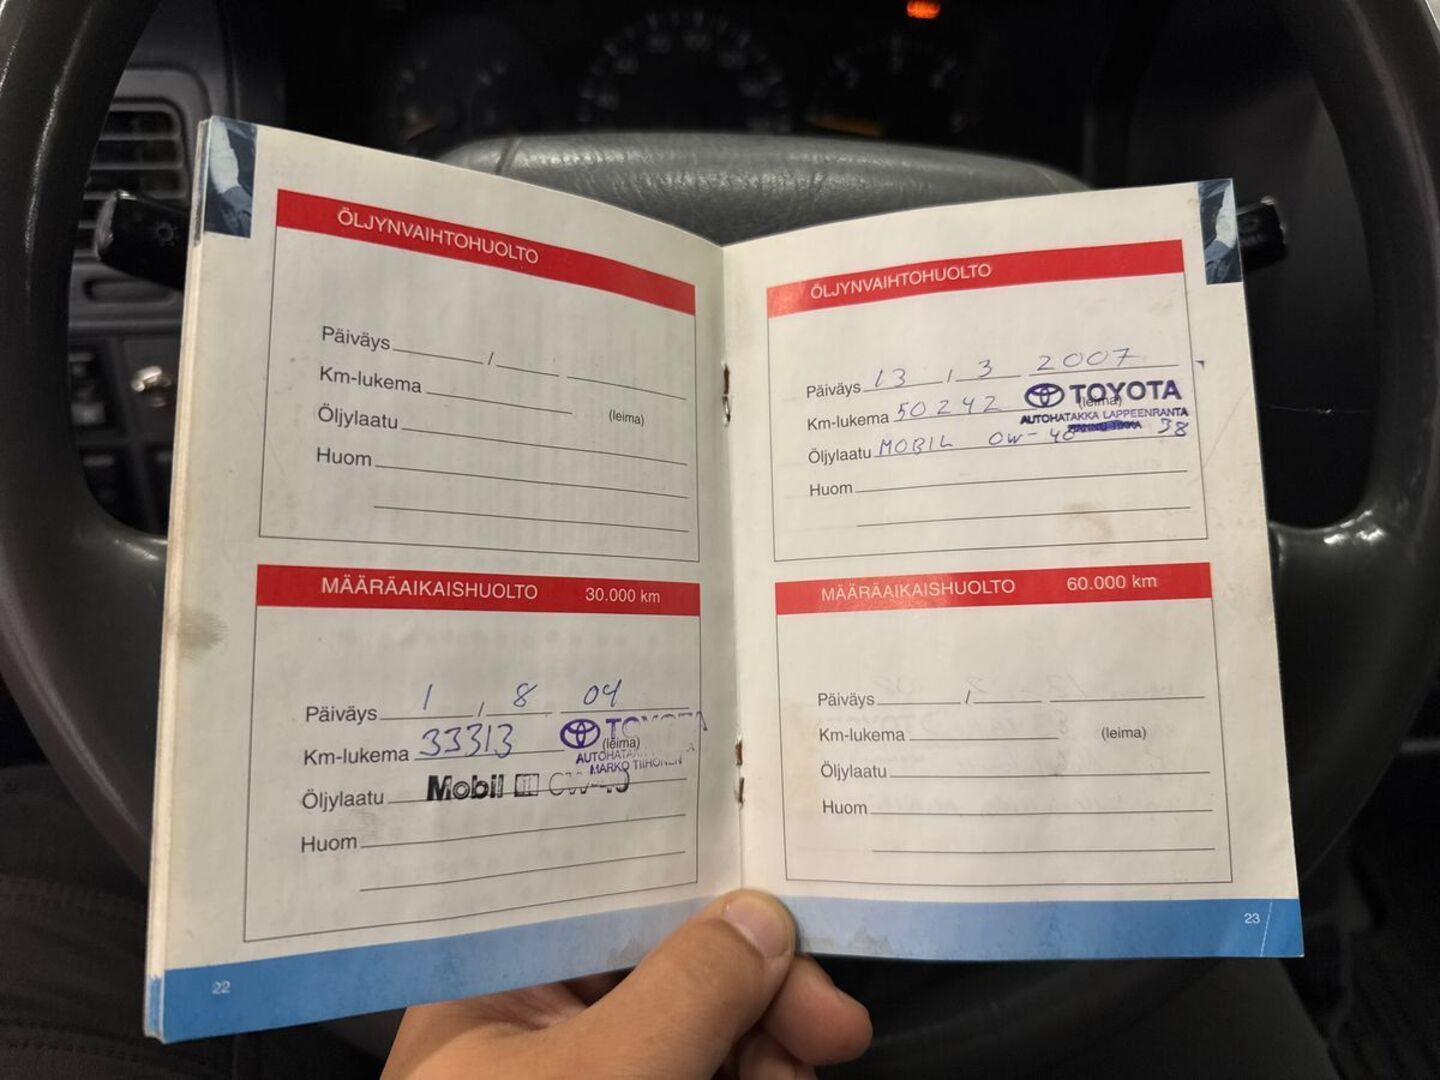 ÖLJYNVAIHTOHUOLTO
Päiväys /
Km-lukema
(leima)
Öljylaatu
Huom
MÄÄRÄAIKAISHUOLTO 30.000 km
Päiväys 1 / 8 04
Km-lukema 33313
(leima)
TOYOTA
MARKO TIIHONEN
Öljylaatu Mobil
Huom
22
ÖLJYNVAIHTOHUOLTO
Päiväys 13 / 3 2007
Km-lukema 50242
(leima)
TOYOTA
AUTOHATAKKA LAPPEENRANTA
Öljylaatu MOBIL 0W-40 38
Huom
MÄÄRÄAIKAISHUOLTO 60.000 km
Päiväys /
Km-lukema
(leima)
Öljylaatu
Huom
23